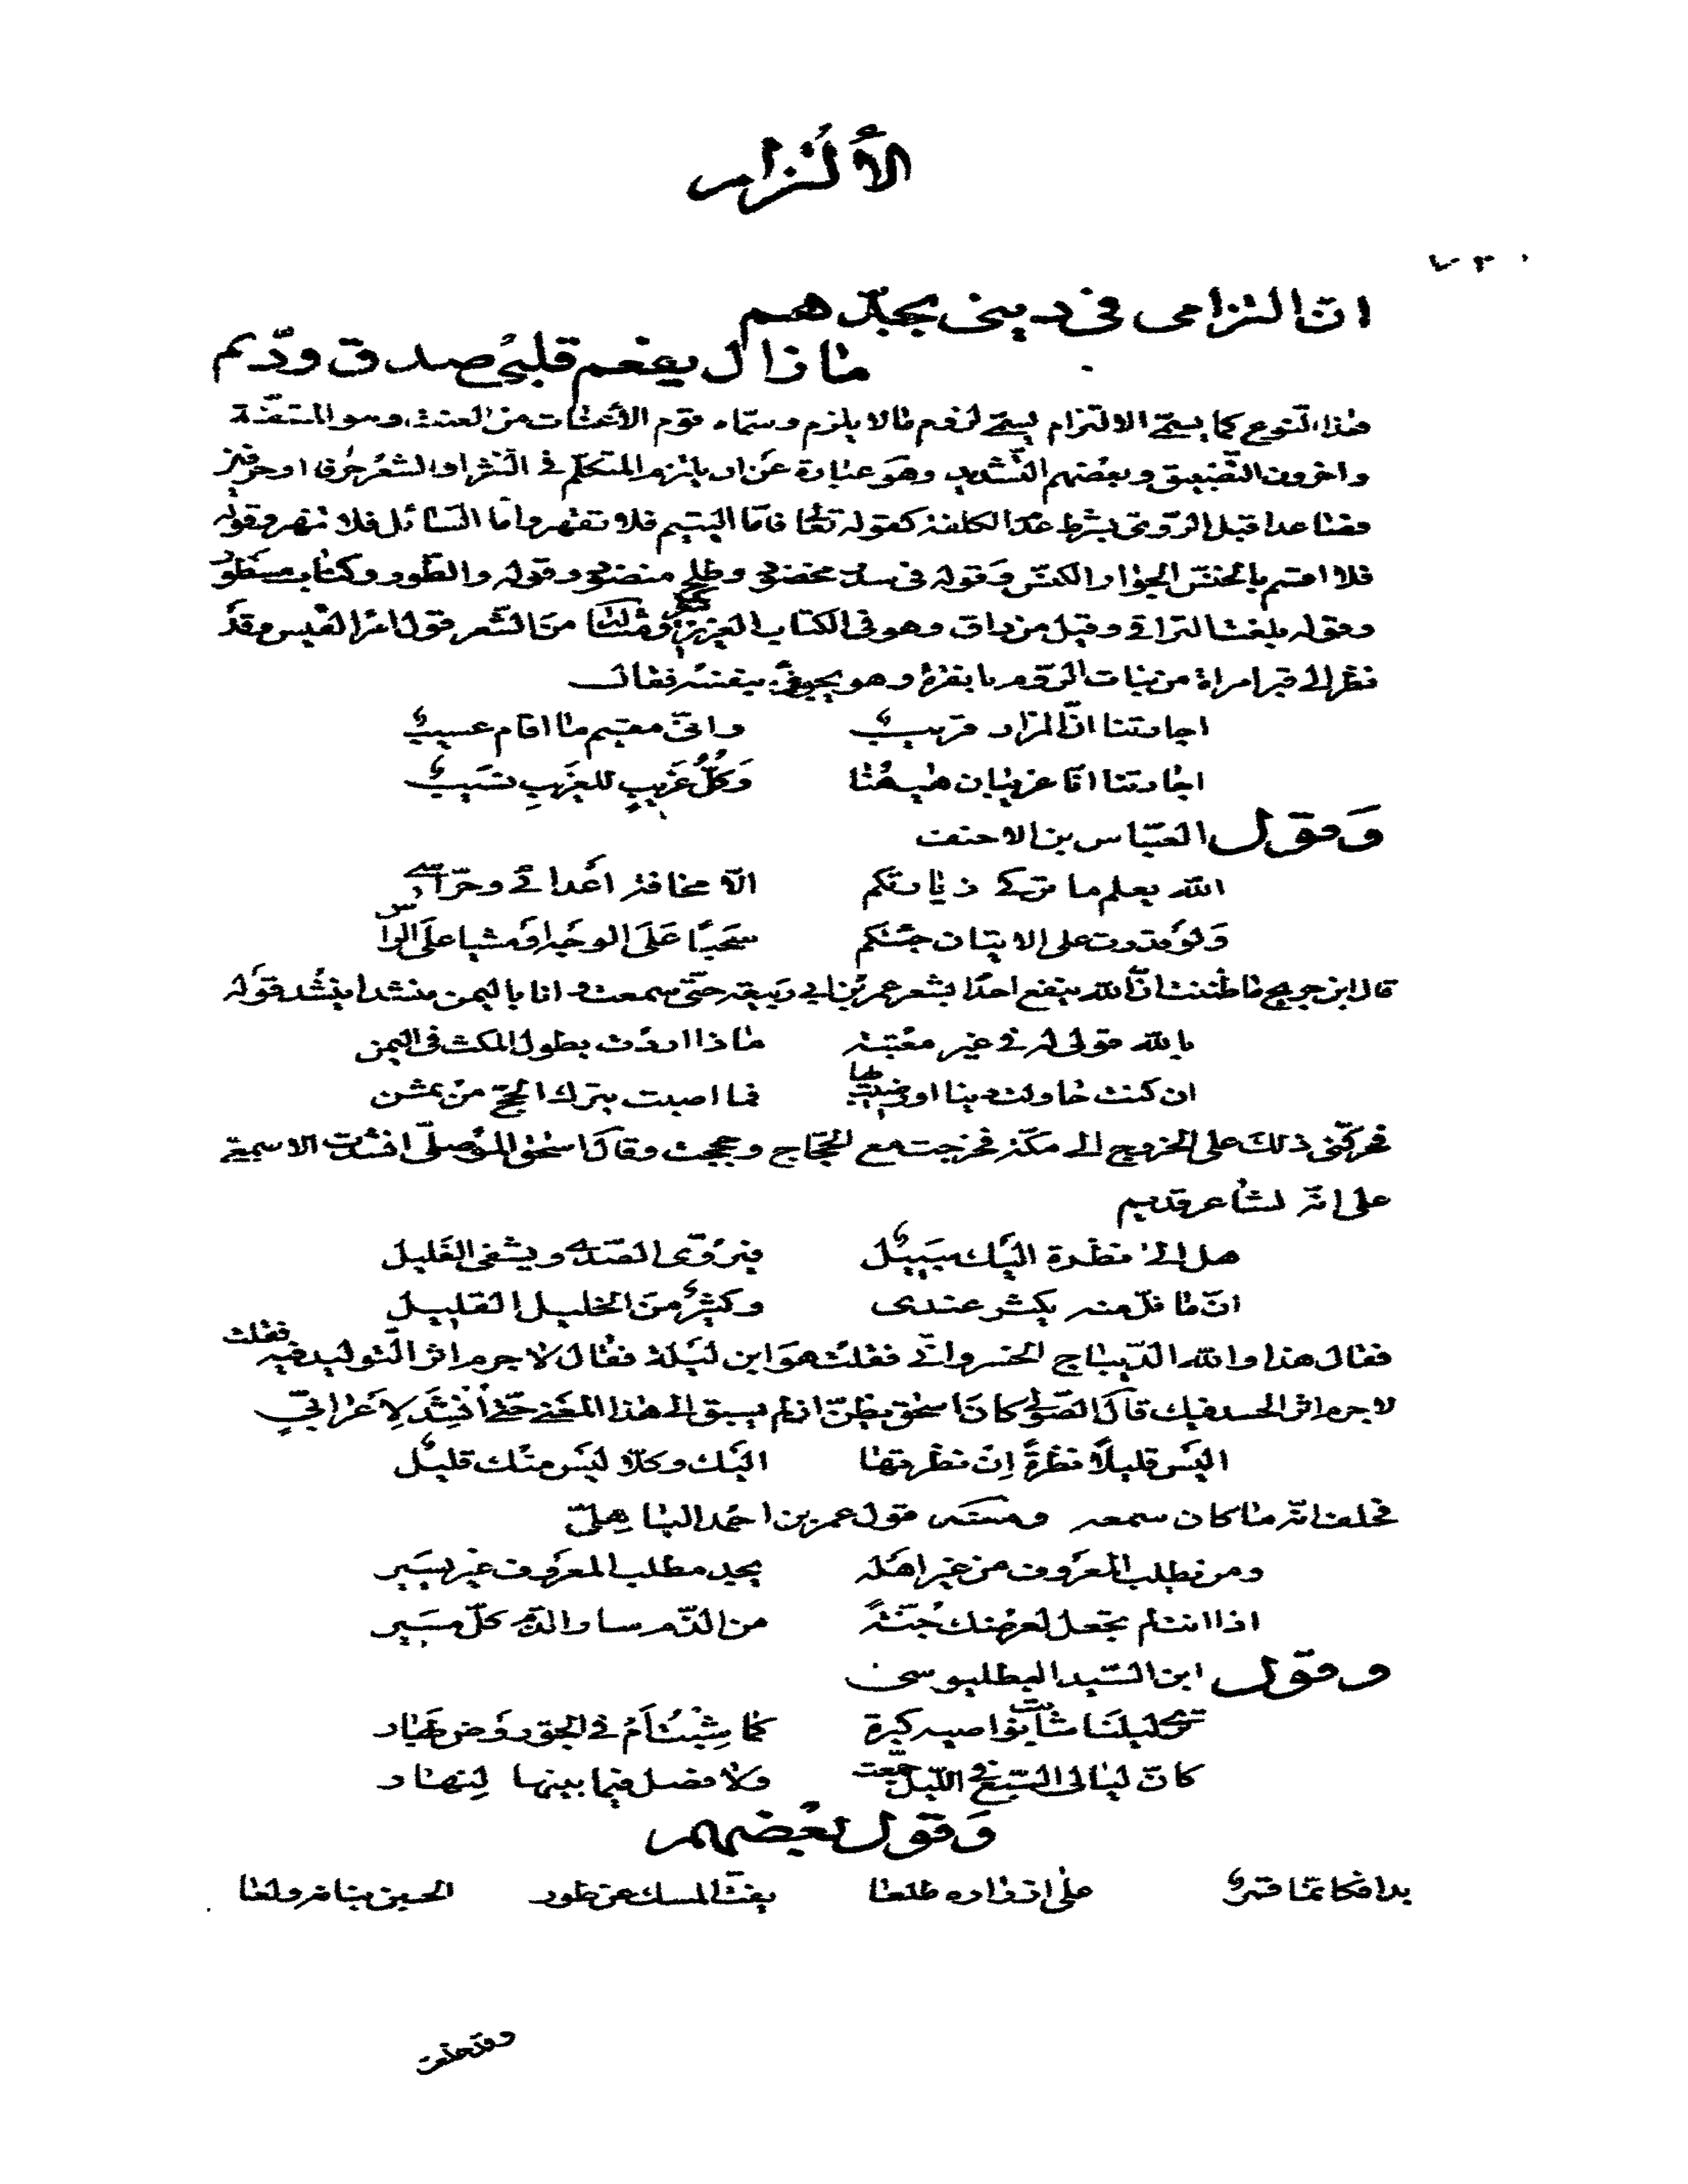 الألتزام
ان التزامى فى دينى بحبّهم
ما زال يفعم قلبى صدق ودّهم
هذا النّوع كما يسمّى الالتزام يسمّى لزوم ما لا يلزم وسمّاه قوم الأعنات من العنت وهو المشقّة
واخرون التّضييق وبعضهم التّشديد وهو عبارة عن ان يلتزم المتكلّم فى النّثر او الشعر حرفا او حرفين
فصاعدا قبل الرّوىّ بشرط عدم الكلفة كقوله تعالى فامّا اليتيم فلا تقهر وامّا السّائل فلا تنهر وقوله
فلا اقسم بالخنّس الجوار الكنّس وقوله فى سدر مخضود وطلح منضود وقوله والطّور وكتاب مسطور
وقوله بلغت التراقى وقيل من راق وهو فى الكتاب العزيز كثير ومثاله من الشّعر قول امرؤ القيس وقد
نظر الى قبر امراة من بنات الرّوم بانقرة وهو يجود بنفسه فقال
اجارتنا انّ المزار قريب وانّى مقيم ما اقام عسيب
اجارتنا انّا غريبان هيهنا وَكلُّ غَريبٍ للغريبِ نسيب
وَقول العبّاس بن الاحنف
اللّه يعلم ما تركى زيارتكم الّا مخافة أعدائى وحرّاسى
وَلو قدرت على الاتيان جئتكم سحبًا عَلَى الوجه او مشيا على الراس
قال ابن جريج ما ظننت انّ اللّه ينفع احدًا بشعر عمر بن ابى ربيعة حتّى سمعت وانا باليمن منشدا ينشد قوله
باللّه قولى له فى غير معتبة ماذا اردت بطول المكث فى اليمن
ان كنت حاولت دينا او رضيت بها فما اصبت بترك الحجّ من ثمن
فحركّنى ذلك على الخروج الى مكّة فخرجت مع الحجّاج وحججت وقال اسحق الموصلّى انشدت الاصمعى
على انّه لشاعر قديم
هل الى نظرة اليك سبيل فيروّى الصّدى ويشفى الغليل
انّ ما قلّ منك يكثر عندى وكثير من الخليل القليل
فقال هذا واللّه الدّيباج الخسروانى فقلت هو ابن ليلة فقال لا جرم اثر التّوليد فيه فقلت
لا جرم اثر الحسد فيك قال الصّولى كان اسحق يظنّ انه لم يسبق الى هذا المعنى حتّى أُنشِدَ لِأعرابىٍّ
اليس قليلًا نظرةً اِن نظرتها اليك وكلّا ليس منك قليل
فحلف انّه ما كان سمعه ومنه قول عمر بن احمد الباهِلىّ
ومن يطلب المعروف من غير اهله يجد مطلب المعروف غير يسير
اذا انت لم تجعل لعرضك جُنّةً من الذّم سار الذّم كلّ مسير
وقول ابن السّيد البطليوسى
ترى ليلنا شابت نواصيه كبرة كما شِبْتُ أم فى الجوّ روض بهار
كانّ ليالى السّبع فى اللّيل جمّعت ولا فضل فيما بينها لِنهار
وَقول بعُضهم
بدا فكانّما قمر على ازراره طلعا يفتّ المسك عن طور الحسين بنانه ولعا
وقد حلف